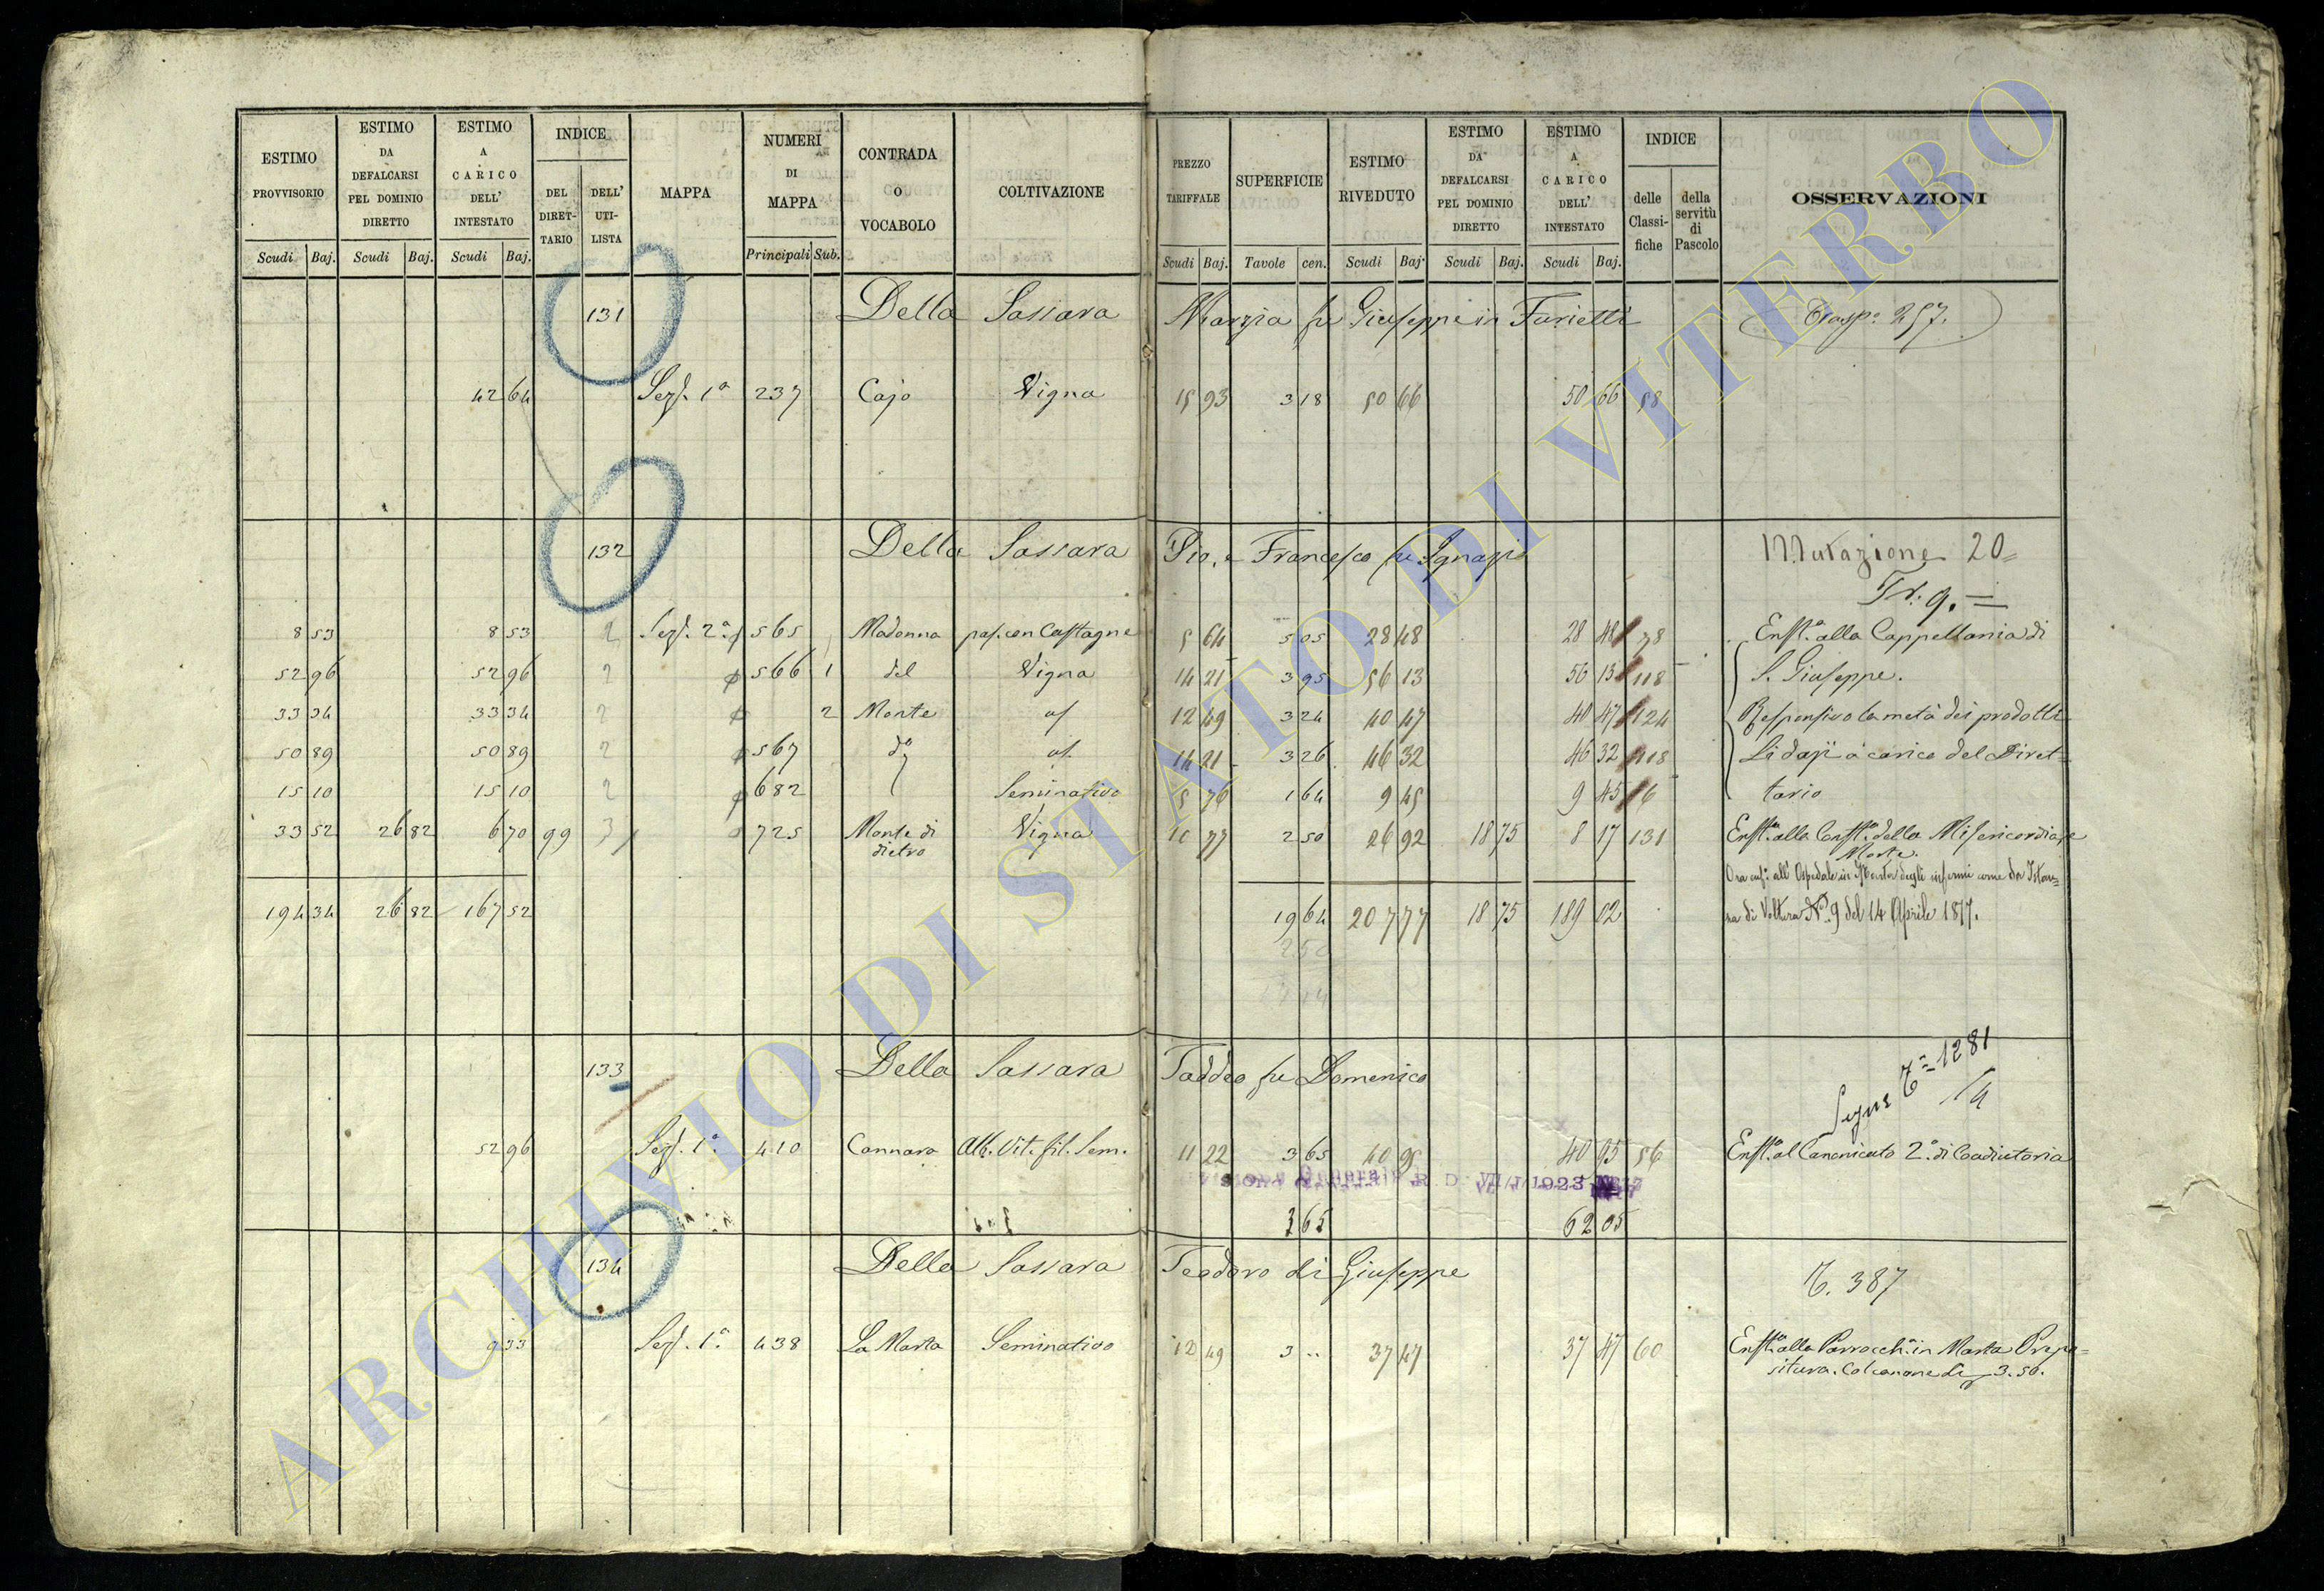 ESTIMO PROVVISORIO
ESTIMO DA DEFALCARSI PEL DOMINIO DIRETTO
ESTIMO A CARICO DELL' INTESTATO
INDICE
DEL DIRET-TARIO
DELL' UTI-LISTA
MAPPA
NUMERI DI MAPPA
CONTRADA O VOCABOLO
COLTIVAZIONE
PREZZO TARIFFALE
SUPERFICIE
ESTIMO RIVEDUTO
ESTIMO DA DEFALCARSI PEL DOMINIO DIRETTO
ESTIMO A CARICO DELL' INTESTATO
INDICE
delle Classi-fiche
della servitù di Pascolo
OSSERVAZIONI
Scudi Baj. Scudi Baj. Scudi Baj. Principali Sub. Scudi Baj. Tavole cen. Scudi Baj. Scudi Baj. Scudi Baj.
131 Della Sassara Marzia fu Giuseppe in Furietti Trasp. 257.
42 64 Sez. 1a 237 Cajo Vigna 15 93 3 18 50 66 50 66 58
132 Della Sassara Pio, e Francesco fu Ignazio Mutazione 20
Tr. 9.
8 53 8 53 2 Sez. 2a 565 Madonna pas. con Castagne 5 64 5 05 28 48 28 48 78 Enfta. alla Cappellania di
52 96 52 96 2 566 1 del Vigna 14 21 3 95 56 13 56 13 118 S. Giuseppe.
33 34 33 34 2 2 Monte a/ 12 49 3 24 40 47 40 47 124 Responsivo la metà dei prodotti
50 89 50 89 2 567 do a/. 14 21 3 26 46 32 46 32 118 Li dazj a carico del Diret-
15 10 15 10 2 682 Seminativo 5 76 1 64 9 45 9 45 6 tario
33 52 26 82 6 70 99 3 725 Monte di dietro Vigna 10 77 2 50 26 92 18 75 8 17 131 Enfta. alla Confta. della Misericordia e
Morte.
Ora enfa. all' Ospedale in Marta degli infermi come da Istan-
194 34 26 82 167 52 19 64 207 77 18 75 189 02 za di Voltura No. 9 del 14 Aprile 1877.
2 50
17 14
133 Della Sassara Taddeo fu Domenico Segue T. 1281
52 96 Sez. 1a. 410 Cannara Alb. Vit. fil. Sem. 11 22 3 65 40 95 40 95 56 Enfta. al Canonicato 2o. di Coadiutoria
Generale R D VII/I/1923
3 65 62 05
134 Della Sassara Teodoro di Giuseppe T. 387
9 33 Sez. 1a. 438 La Marta Seminativo 12 49 3 .. 37 47 37 47 60 Enfta. alla Parrocchia in Marta Prepo=
situra. Col canone di 3.50.
ARCHIVIO DI STATO DI VITERBO